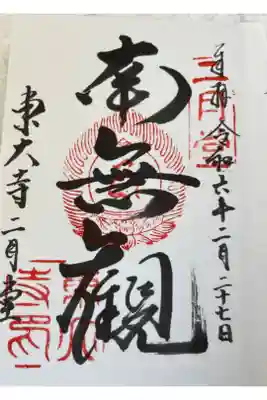 奉拝 令和六十二月二十七日
南無観
東大寺二月堂